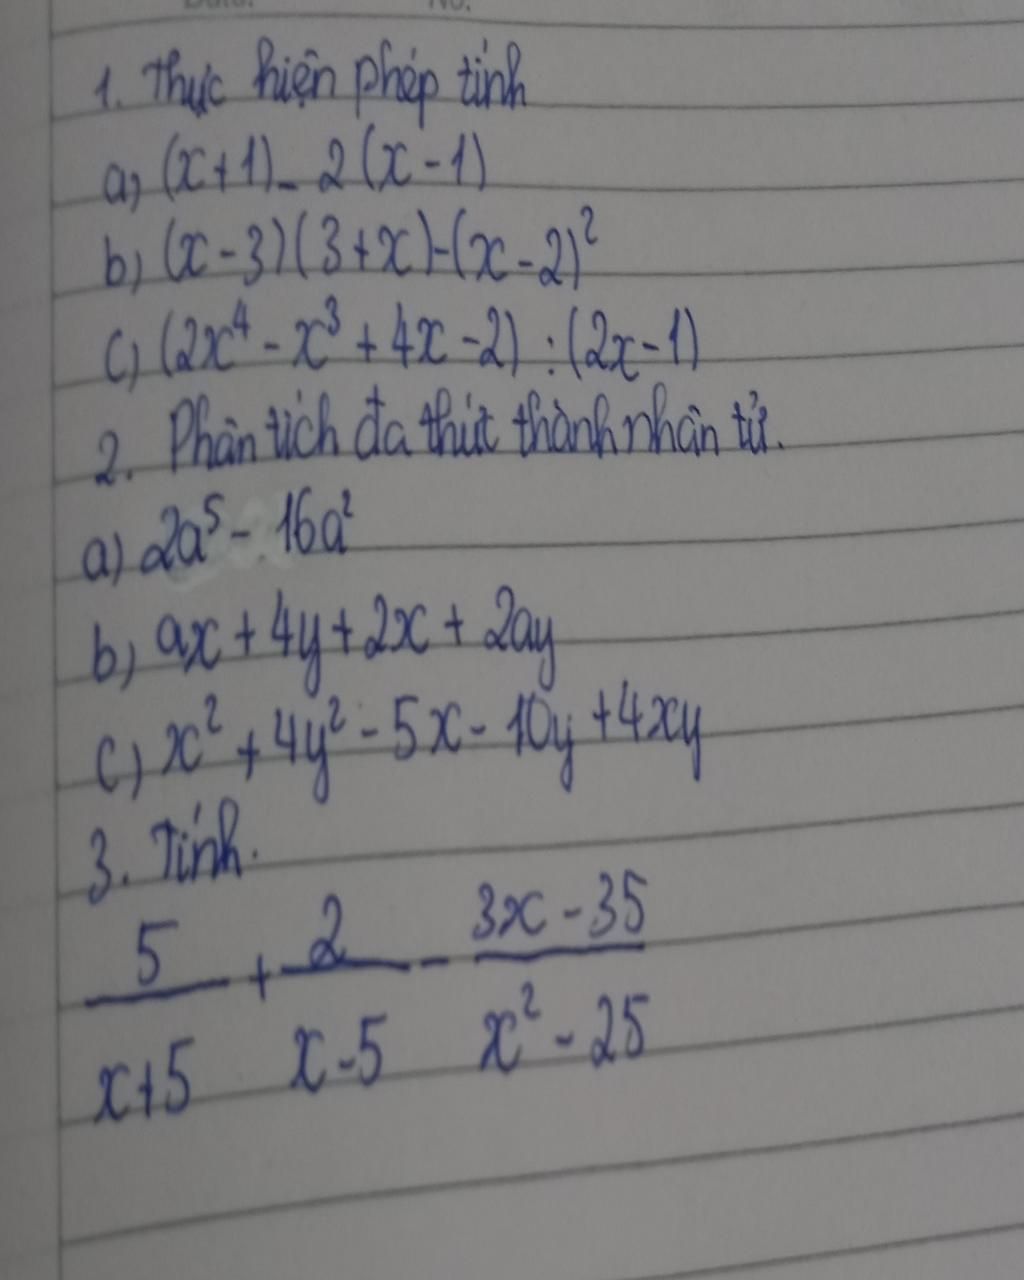 No.
1. Thực hiện phép tính
a, (x+1) - 2(x-1)
b, (x-3)(3+x)-(x-2)²
c, (2x⁴ - x³ + 4x - 2) : (2x-1)
2. Phân tích đa thức thành nhân tử.
a) 2a⁵ - 16a²
b, ax + 4y + 2x + 2ay
c, x² + 4y² - 5x - 10y + 4xy
3. Tính.
5/(x+5) + 2/(x-5) - (3x-35)/(x²-25)